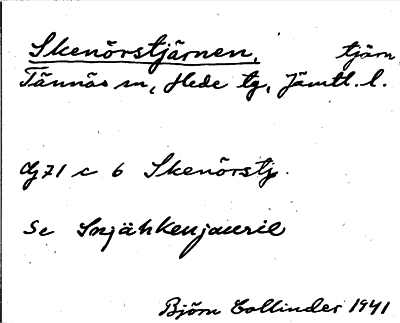 Skenörstjärnen, tjärn
Tännäs sn, Hede tg, Jämtl. l.
Gj 71 c 6 Skenörstj.
Se Snjähkenjaurie
Björn Collinder 1941